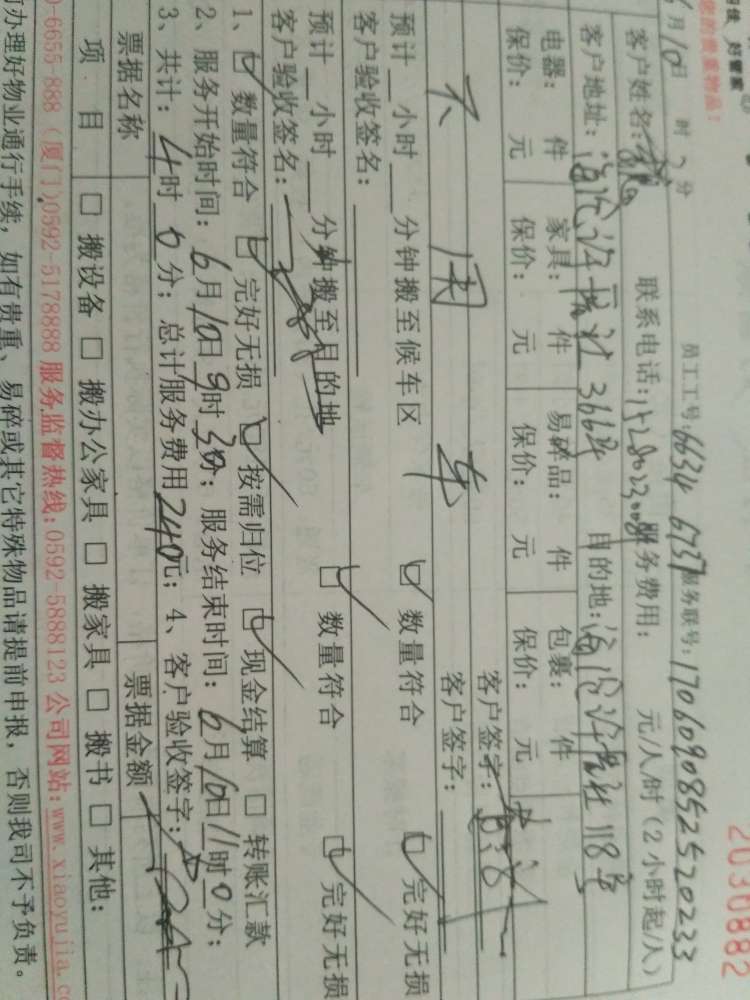 2030882
您的贵重物品！
6月10日 时 分 员工工号：6634 6737 服务联号：17060908525520233
客户姓名： 联系电话： 服务费用： 元/人/时（2小时起/人）
客户地址： 366号 目的地： 118号
电器： 件 家具： 件 易碎品： 件 包裹： 件
保价： 元 保价： 元 保价： 元 保价： 元
客户签字：
不 用 车 客户签字：
预计 小时 分钟搬至候车区 数量符合 完好无损
客户验收签名：
预计 小时 分钟搬至目的地 数量符合 完好无损
客户验收签名：
1、 数量符合 完好无损 按需归位 现金结算 转账汇款
2、服务开始时间：6月10日9时30分；服务结束时间：6月10日11时0分；
3、共计：4时0分；总计服务费用240元；4、客户验收签字：
票据名称 票据金额
项 目 □ 搬设备 □ 搬办公家具 □ 搬家具 □ 搬书 □ 其他：
0-6655 888（厦门)0592-5178888 服务监督热线:0592-5888123 公司网站:www.xiaoyujia.co
办理好物业通行手续，如有贵重、易碎或其它特殊物品请提前申报，否则我司不予负责。